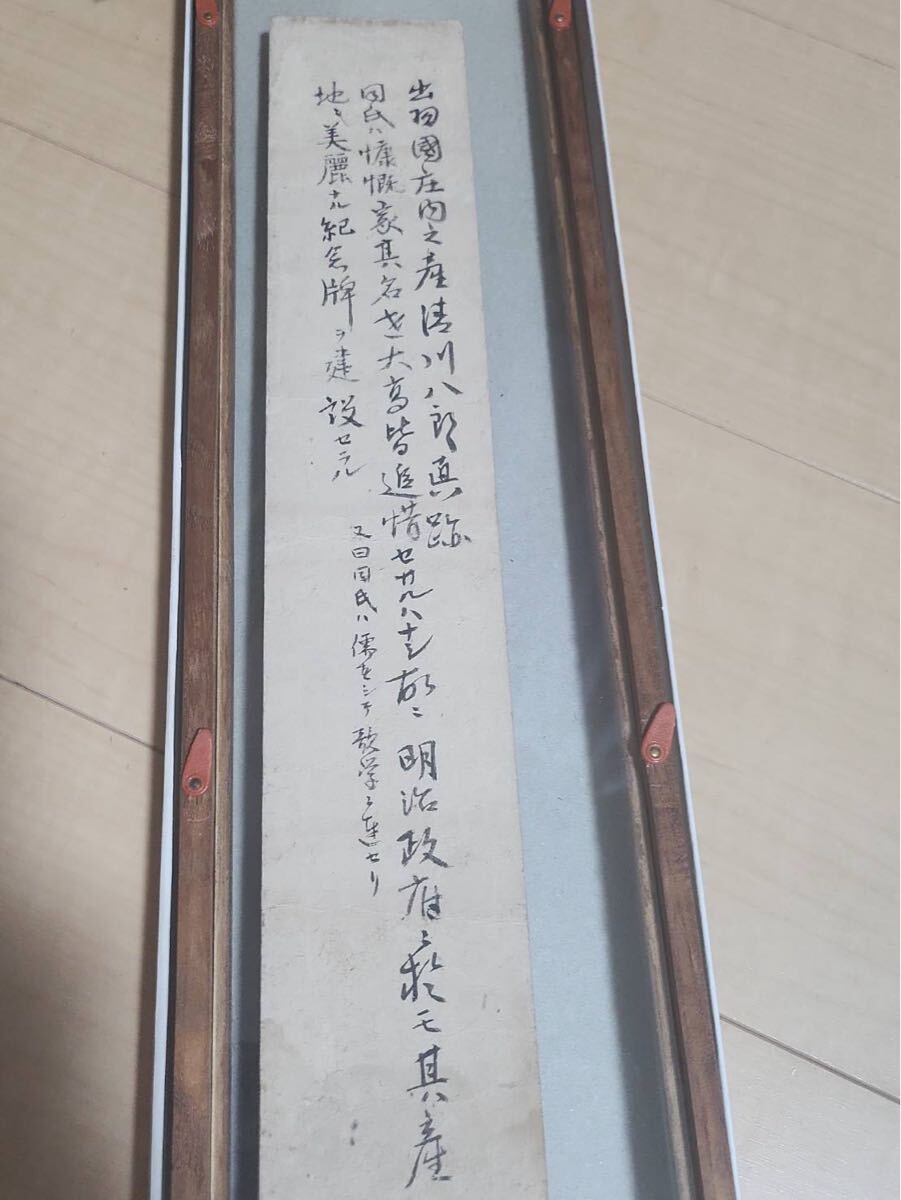 出羽國庄内之産清川八郎真跡
同氏ハ慷慨家其名世大高皆追惜セサルハナシ故ニ明治政府ニ於モ其産
地ニ美麗ナル紀念牌ヲ建設セラル
又曰同氏ハ儒者ニシテ歌学ニ達セリ